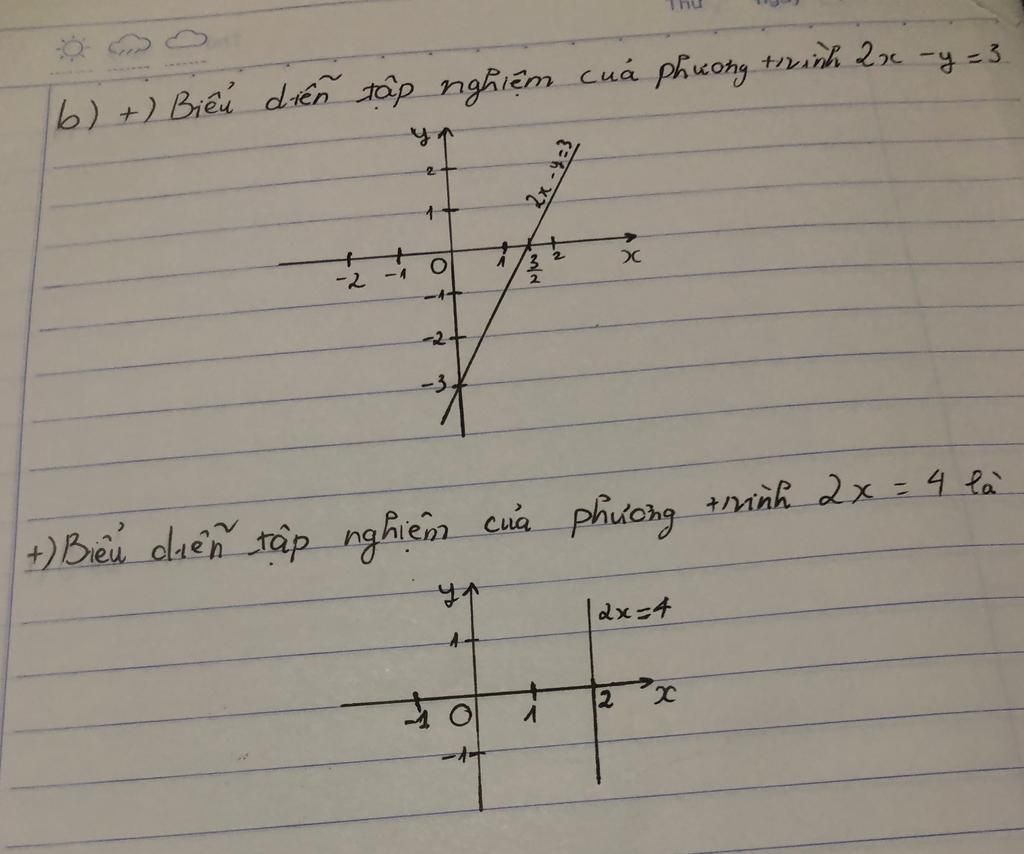 Thứ
b) +) Biểu diễn tập nghiệm của phương trình 2x - y = 3
y
2
2x - y = 3
1
-2 -1 O 1 3/2 2 x
-1
-2
-3
+) Biểu diễn tập nghiệm của phương trình 2x = 4 là
y
2x = 4
1
-1 O 1 2 x
-1